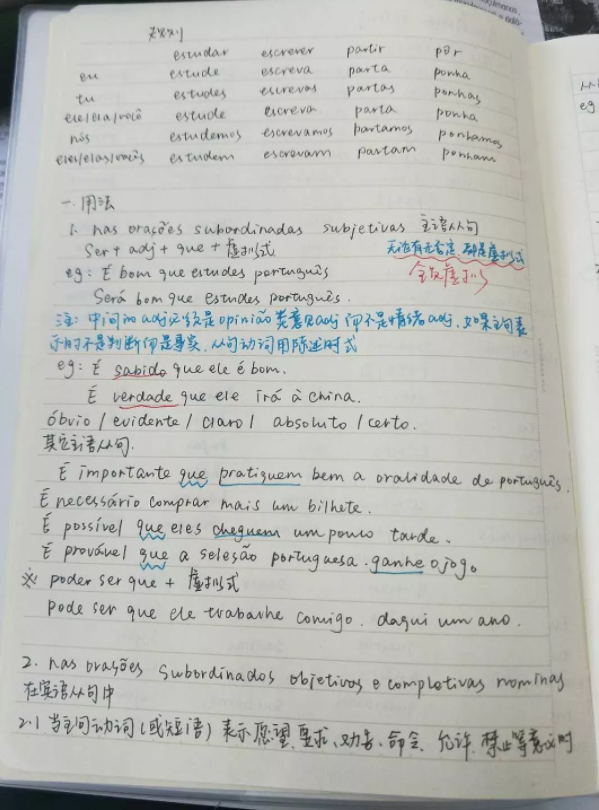 estudar escrever partir pôr
eu estude escreva parta ponha
tu estudes escrevas partas ponhas
ele/ela/você estude escreva parta ponha
nós estudemos escrevamos partamos ponhamos
eles/elas/vocês estudem escrevam partam ponham
一.用法
1. nas orações subordinadas subjetivas 主语从句
Ser + adj + que + 虚拟式 无论有无否定,都是虚拟式
eg: É bom que estudes português 全是虚拟
Será bom que estudes português.
注: 中间的adj必须是opinião类意见adj 而不是情绪adj. 如果主句表
示的不是判断而是事实, 从句动词用陈述时式
eg: É sabido que ele é bom.
É verdade que ele irá à China.
óbvio / evidente / claro / absoluto / certo.
其它主语从句.
É importante que pratiquem bem a oralidade de português.
É necessário comprar mais um bilhete.
É possível que eles cheguem um pouco tarde.
É provável que a seleção portuguesa ganhe o jogo
※ poder ser que + 虚拟式
Pode ser que ele trabalhe comigo. daqui um ano.
2. nas orações subordinados objetivos e completivas nominas
在宾语从句中
2.1 当主句动词(或短语) 表示愿望、要求、劝告、命令、允许、禁止等意义时
eg